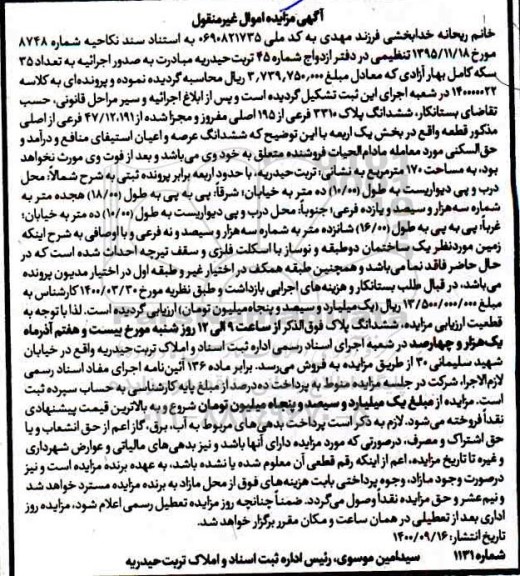 آگهی مزایده اموال غیرمنقول
خانم ریحانه خدابخشی فرزند مهدی به کد ملی ۰۶۹۰۸۲۱۷۳۵ به استناد سند نکاحیه شماره ۸۷۴۸
مورخ ۱۳۹۵/۱۱/۱۸ تنظیمی در دفتر ازدواج شماره ۴۵ تربت حیدریه مبادرت به صدور اجرائیه به تعداد ۳۵
سکه کامل بهار آزادی که معادل مبلغ ۳,۷۳۹,۷۵۰,۰۰۰ ریال محاسبه گردیده نموده و پرونده‌ای به کلاسه
۱۴۰۰۰۰۰۲۲ در شعبه اجرای این ثبت تشکیل گردیده است و پس از ابلاغ اجرائیه و سیر مراحل قانونی، حسب
تقاضای بستانکار، ششدانگ پلاک ۳۳۱۰ فرعی از ۱۹۵ اصلی مفروز و مجزا شده از ۴۷/۱۲،۱۹۱ فرعی از اصلی
مذکور قطعه واقع در بخش یک اربعه با این توضیح که ششدانگ عرصه و اعیان استیفای منافع و درآمد و
حق‌السکنی مورد معامله مادام‌الحیات فروشنده متعلق به خود وی می‌باشد و بعد از فوت وی مورث نخواهد
بود، به مساحت ۱۷۰ مترمربع به نشانی: تربت حیدریه، با حدود اربعه برابر پرونده ثبتی به شرح شمالاً: محل
درب و پی دیواریست به طول (۱۰/۰۰) ده متر به خیابان؛ شرقاً: پی به پی به طول (۱۸/۰۰) هجده متر به
شماره سه‌هزار و سیصد و یازده فرعی؛ جنوباً: محل درب و پی دیواریست به طول (۱۰/۰۰) ده متر به خیابان؛
غرباً: پی به پی به طول (۱۶/۰۰) شانزده متر به شماره سه‌هزار و سیصد و نه فرعی و با اوصافی به شرح اینکه
زمین موردنظر یک ساختمان دوطبقه و نوساز با اسکلت فلزی و سقف تیرچه احداث شده است که در
حال حاضر فاقد نما می‌باشد و همچنین طبقه همکف در اختیار غیر و طبقه اول در اختیار مدیون پرونده
می‌باشد، در قبال طلب بستانکار و هزینه‌های اجرایی بازداشت و طبق نظریه مورخ ۱۴۰۰/۰۳/۳۰ کارشناس به
مبلغ ۱۳/۵۰۰/۰۰۰/۰۰۰ ریال (یک میلیارد و سیصد و پنجاه میلیون تومان) ارزیابی گردیده است. لذا با توجه به
قطعیت ارزیابی مزایده، ششدانگ پلاک فوق‌الذکر از ساعت ۹ الی ۱۲ روز شنبه مورخ بیست و هفتم آذرماه
یک‌هزار و چهارصد در شعبه اجرای اسناد رسمی اداره ثبت اسناد و املاک تربت حیدریه واقع در خیابان
شهید سلیمانی ۳۰ از طریق مزایده به فروش می‌رسد. برابر ماده ۱۳۶ آئین‌نامه اجرای مفاد اسناد رسمی
لازم‌الاجرا، شرکت در جلسه مزایده منوط به پرداخت ده‌درصد از مبلغ پایه کارشناسی به حساب سپرده ثبت
است. مزایده از مبلغ یک میلیارد و سیصد و پنجاه میلیون تومان شروع و به بالاترین قیمت پیشنهادی
نقداً فروخته می‌شود. لازم به ذکر است پرداخت بدهی‌های مربوط به آب، برق، گاز اعم از حق انشعاب و یا
حق اشتراک و مصرف، درصورتی که مورد مزایده دارای آنها باشد و نیز بدهی‌های مالیاتی و عوارض شهرداری
و غیره تا تاریخ مزایده، اعم از اینکه رقم قطعی آن معلوم شده یا نشده باشد، به عهده برنده مزایده است و نیز
درصورت وجود مازاد، وجوه پرداختی بابت هزینه‌های فوق از محل مازاد به برنده مزایده مسترد خواهد شد
و نیم‌عشر و حق مزایده نقداً وصول می‌گردد. ضمناً چنانچه روز مزایده تعطیل رسمی اعلام شود، مزایده روز
اداری بعد از تعطیلی در همان ساعت و مکان مقرر برگزار خواهد شد.
تاریخ انتشار: ۱۴۰۰/۰۹/۱۶
شماره ۱۱۳۱ سیدامین موسوی، رئیس اداره ثبت اسناد و املاک تربت حیدریه